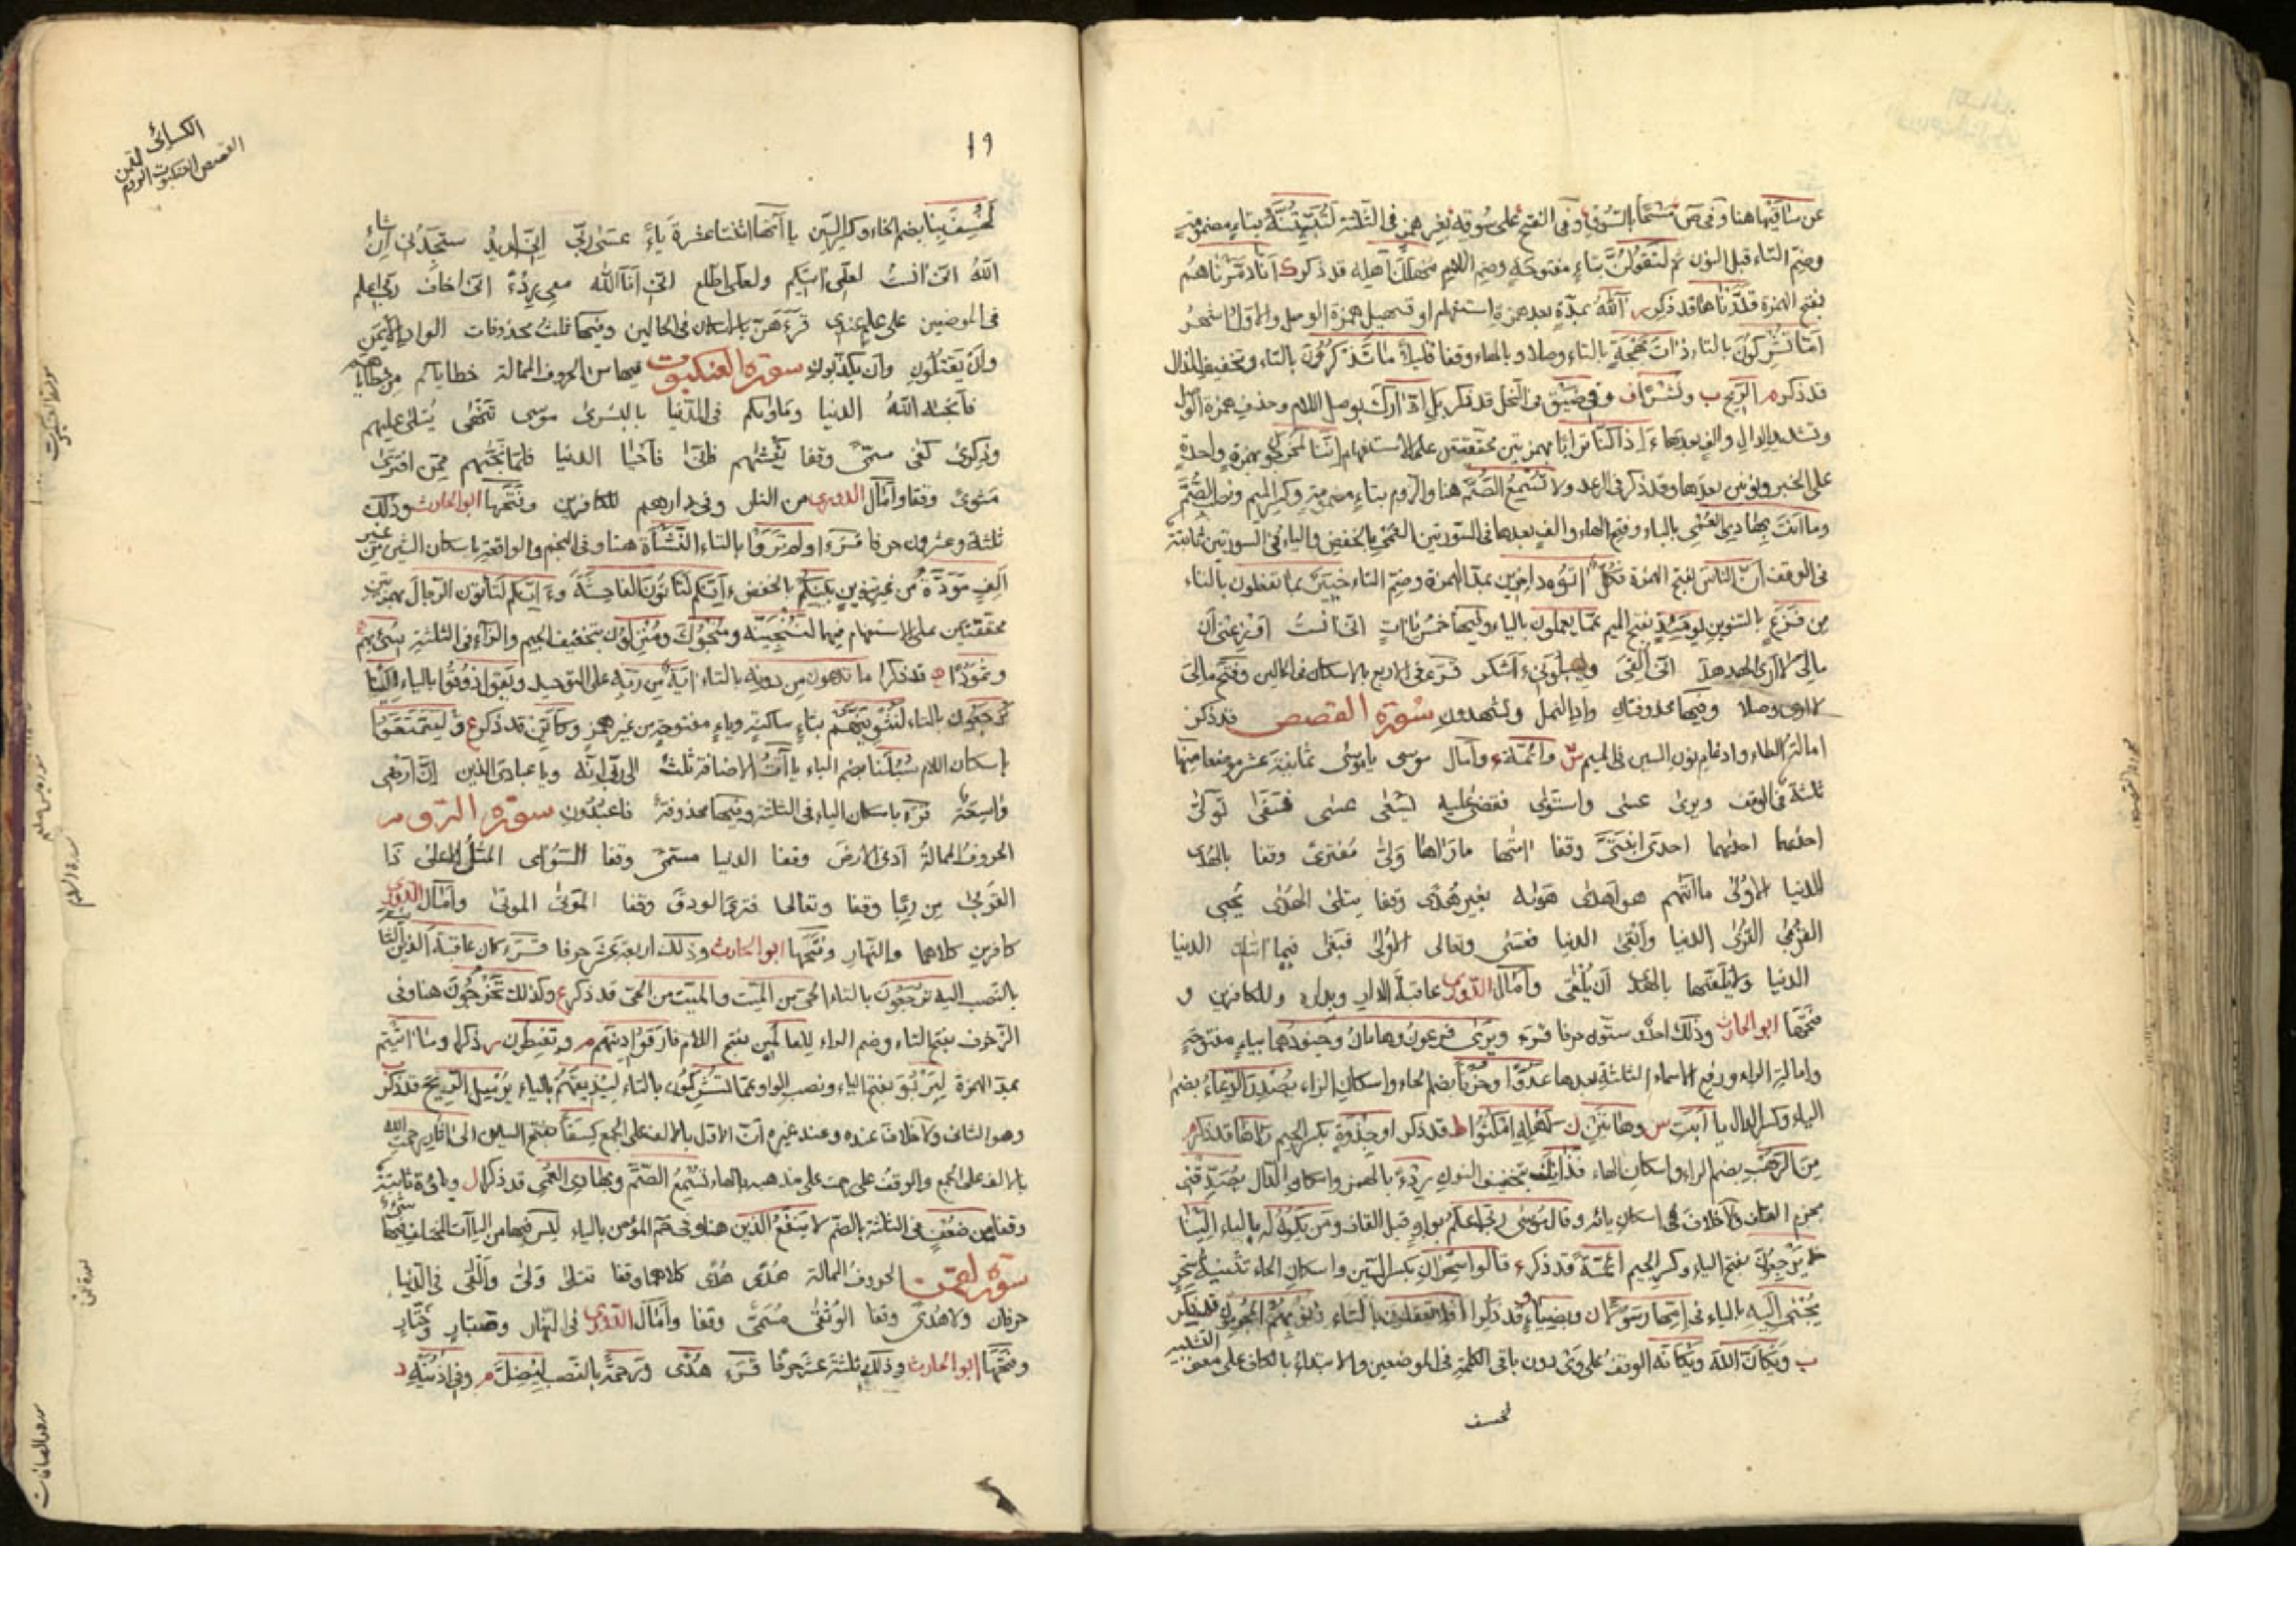 عن ساقيها هنا وفى ص مسحا بالسوق وفى الفتح على سوقه بغير همز فى الثلثة لتبيتنه بتاء مضمومة
وضم التاء قبل النون ثم لتقولن بتاء مفتوحة وضم اللام مهلك اهله قد ذكر ك انا دمرناهم
بفتح الهمزة قدرناها قد ذكر آلله بمدة بعد همزة استفهام او تسهيل همزة الوصل والاول اشهر
اما تشركون بالتاء ذات بهجة بالتاء وصلا وبالهاء وقفا قليلا ما تذكرون بالتاء وتخفيف الذال
قد ذكر م الريح ب ونشرا ف وفى ضيق فى النحل قد ذكر بل ادارك بوصل اللام وحذف همزة الوصل
وتشديد الدال والف بعدها ءاذا كنا ترابا بهمزتين محققتين على الاستفهام اننا لمخرجون بهمزة واحدة
على الخبر ونونين بعدها وقد ذكر فى الرعد ولا تسمع الصم هنا والروم بتاء مضمومة وكسر الميم ونصب الصم
وما انت بهادى العمى بالباء وفتح الهاء والف بعدها فى السورتين العمى بالخفض والياء فى السورتين ثابتة
فى الوقف ان الناس بفتح الهمزة وكل اتوه داخرين بمد الهمزة وضم التاء خبير بما تفعلون بالتاء
من فزع بالتنوين يومئذ بفتح الميم عما يعملون بالياء وفيها خمس ياءات انى انست اوزعنى ان
مالى لا ارى الهدهد انى القى ليبلونى ءاشكر قرء فى الاربع بالاسكان فى الحالين وفتح مالى
لا ارى وصلا وفيها محذوفتان واد النمل وتشهدون سورة القصص قد ذكر
امالة الطاء وادغام نون السين فى الميم س وائمة ء وامال موسى يا موسى ثمانية عشر موضعا منها
ثلثة فى الوقف ونرى عسى واستوى فقضى عليه يسعى عسى فسقى تولى
احدهما احديهما احدى ابنتى وقفا اتيها راها ولى مفترى وقفا بالهدى
الدنيا الاولى ما اتيهم هو اهدى هويه بغير هدى وقفا يتلى الهدى يجبى
القرى القرى الدنيا وابقى الدنيا فعسى وتعالى الاولى فبغى فيما اتيك الدنيا
الدنيا ولا يلقيها بالهدى ان يلقى وامال الدورى عاقبة الدار وبداره وللكافرين و
فتحها ابو الحارث وذلك احد وستون حرفا قرء ويرى فرعون وهامان وجنودهما بياء مفتوحة
وامالة الراء ورفع الاسماء الثلثة بعدها عدوا وحزنا بضم الحاء واسكان الزاء يصدر الرعاء بضم
الياء وكسر الدال يا ابت س وهاتين ن لاهله امكثوا ط قد ذكر او جذوة بكسر الجيم راها قد ذكر
من الرهب بضم الراء واسكان الهاء فذانك بتخفيف النون ردءا بالهمز واسكان الدال يصدقنى
بجزم القاف ولا خلاف فى اسكان يائه وقال موسى ربى اعلم بواو قبل القاف ومن يكون له بالياء الينا
لا يرجعون بفتح الياء وكسر الجيم ائمة قد ذكر ء قالوا سحران بكسر السين واسكان الحاء تثنية سحر
يجبى اليه بالياء فى امها رسولا ن وبضياء قد ذكرا افلا تعقلون بالتاء
ب ويكان الله ويكانه الوقف على وى دون باقى الكلمة فى الموضعين والابتداء بالكاف على معنى التشبيه
لخسف
١٩
الكسائى
القصص العنكبوت الروم لقمن
لخسف بنا بضم الخاء وكسر السين ياآتها اثنتا عشرة ياء عسى ربى انى اريد ستجدنى ان شاء
الله انى انست لعلى اتيكم ولعلى اطلع انى انا الله معى ردءا انى اخاف ربى اعلم
فى الموضعين على علم عندى قرءهن بالاسكان فى الحالين وفيها ثلث محذوفات الواد الايمن
وان يقتلون وان يكذبون سورة العنكبوت فيها من الحروف الممالة خطاياكم من خطاياهم
فانجيه الله الدنيا وماويكم فى الدنيا بالبشرى موسى تنهى يتلى عليهم
وذكرى كفى مسمى وقفا يغشيهم فانى فاحيا الدنيا فلما نجيهم ممن افترى
مثوى وقفا وامال الدورى من النار وفى دارهم للكافرين وفتحها ابو الحارث وذلك
ثلثة وعشرون حرفا قرء اولم تروا بالتاء النشاة هنا وفى النجم والواقعة باسكان الشين من غير
الف مودة من غير تنوين بينكم بالخفض ءانكم لتاتون الفاحشة وءانكم لتاتون الرجال بهمزتين
محققتين على الاستفهام فيهما لننجينه ومنجوك ومنزلون بتخفيف الجيم والزاء فى الثلثة سئ بهم
وثمودا ه قد ذكرا ما تدعون من دونه بالتاء اية من ربه على التوحيد ويقول ذوقوا بالياء الينا
ترجعون بالتاء لنثوينهم بثاء ساكنة وياء مفتوحة من غير همز وكاين قد ذكر ع وليتمتعوا
باسكان اللام سبلنا بضم الباء ياآت الاضافة ثلث الى ربى انه ويا عبادى الذين ان ارضى
واسعة قرء باسكان الياء فى الثلثة وفيها محذوفة فاعبدون سورة الروم
الحروف الممالة ادنى الارض وقفا الدنيا مسمى وقفا السؤاى المثل الاعلى ذا
القربى من ربا وقفا وتعالى فترى الودق وقفا الموتى الموتى وامال الدورى
كافرين كلاهما والنهار وفتحها ابو الحارث وذلك اربعة عشر حرفا قرء كان عاقبة الذين
بالنصب اليه ترجعون بالتاء الحى من الميت والميت من الحى قد ذكر ع وكذلك تخرجون هنا وفى
الزخرف بفتح التاء وضم الراء للعالمين بفتح اللام فارقوا دينهم م ويقنطون ر ذكرا وما اتيتم
بمد الهمزة ليربو بفتح الياء ونصب الواو عما تشركون بالتاء ليذيقهم بالياء يرسل الريح قد ذكر
وهو الثانى ولا خلاف عنده وعند غيره ان الاول بالالف على الجمع كسفا بفتح السين الى اثار رحمت الله
بالالف على الجمع والوقف على رحمت على مذهبه بالهاء تسمع الصم وبهادى العمى قد ذكرا ل وياؤه ثابتة
وقفا من ضعف فى الثلثة بالضم لا ينفع الذين هنا وفى حم المؤمن بالياء ليس فيها من الياآت المختلف فيها شىء
سورة لقمن الحروف الممالة هدى هدى كلاهما وقفا تتلى ولى والقى فى الدنيا
حرفان ولا هدى وقفا الوثقى مسمى وقفا وامال الدورى فى النهار وصبار وختار
وفتحها ابو الحارث وذلك ثلثة عشر حرفا قرء هدى ورحمة بالنصب ليضل م وفى اذنيه د
سورة العنكبوت
سورة الصافات